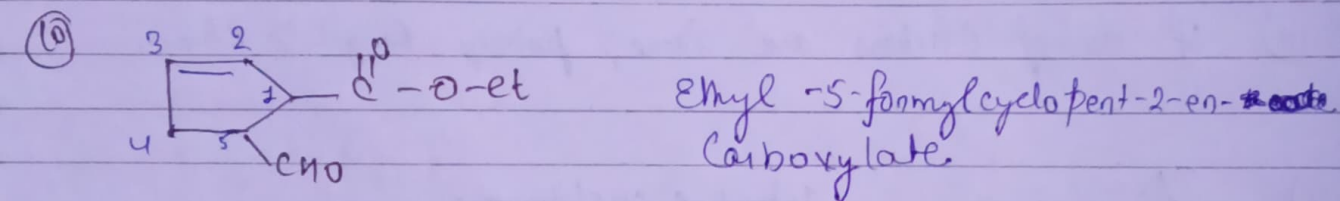 10
3 2 O
1 C - O - et
4 5
CHO
Ethyl -5-formylcyclopent-2-en-
Carboxylate.